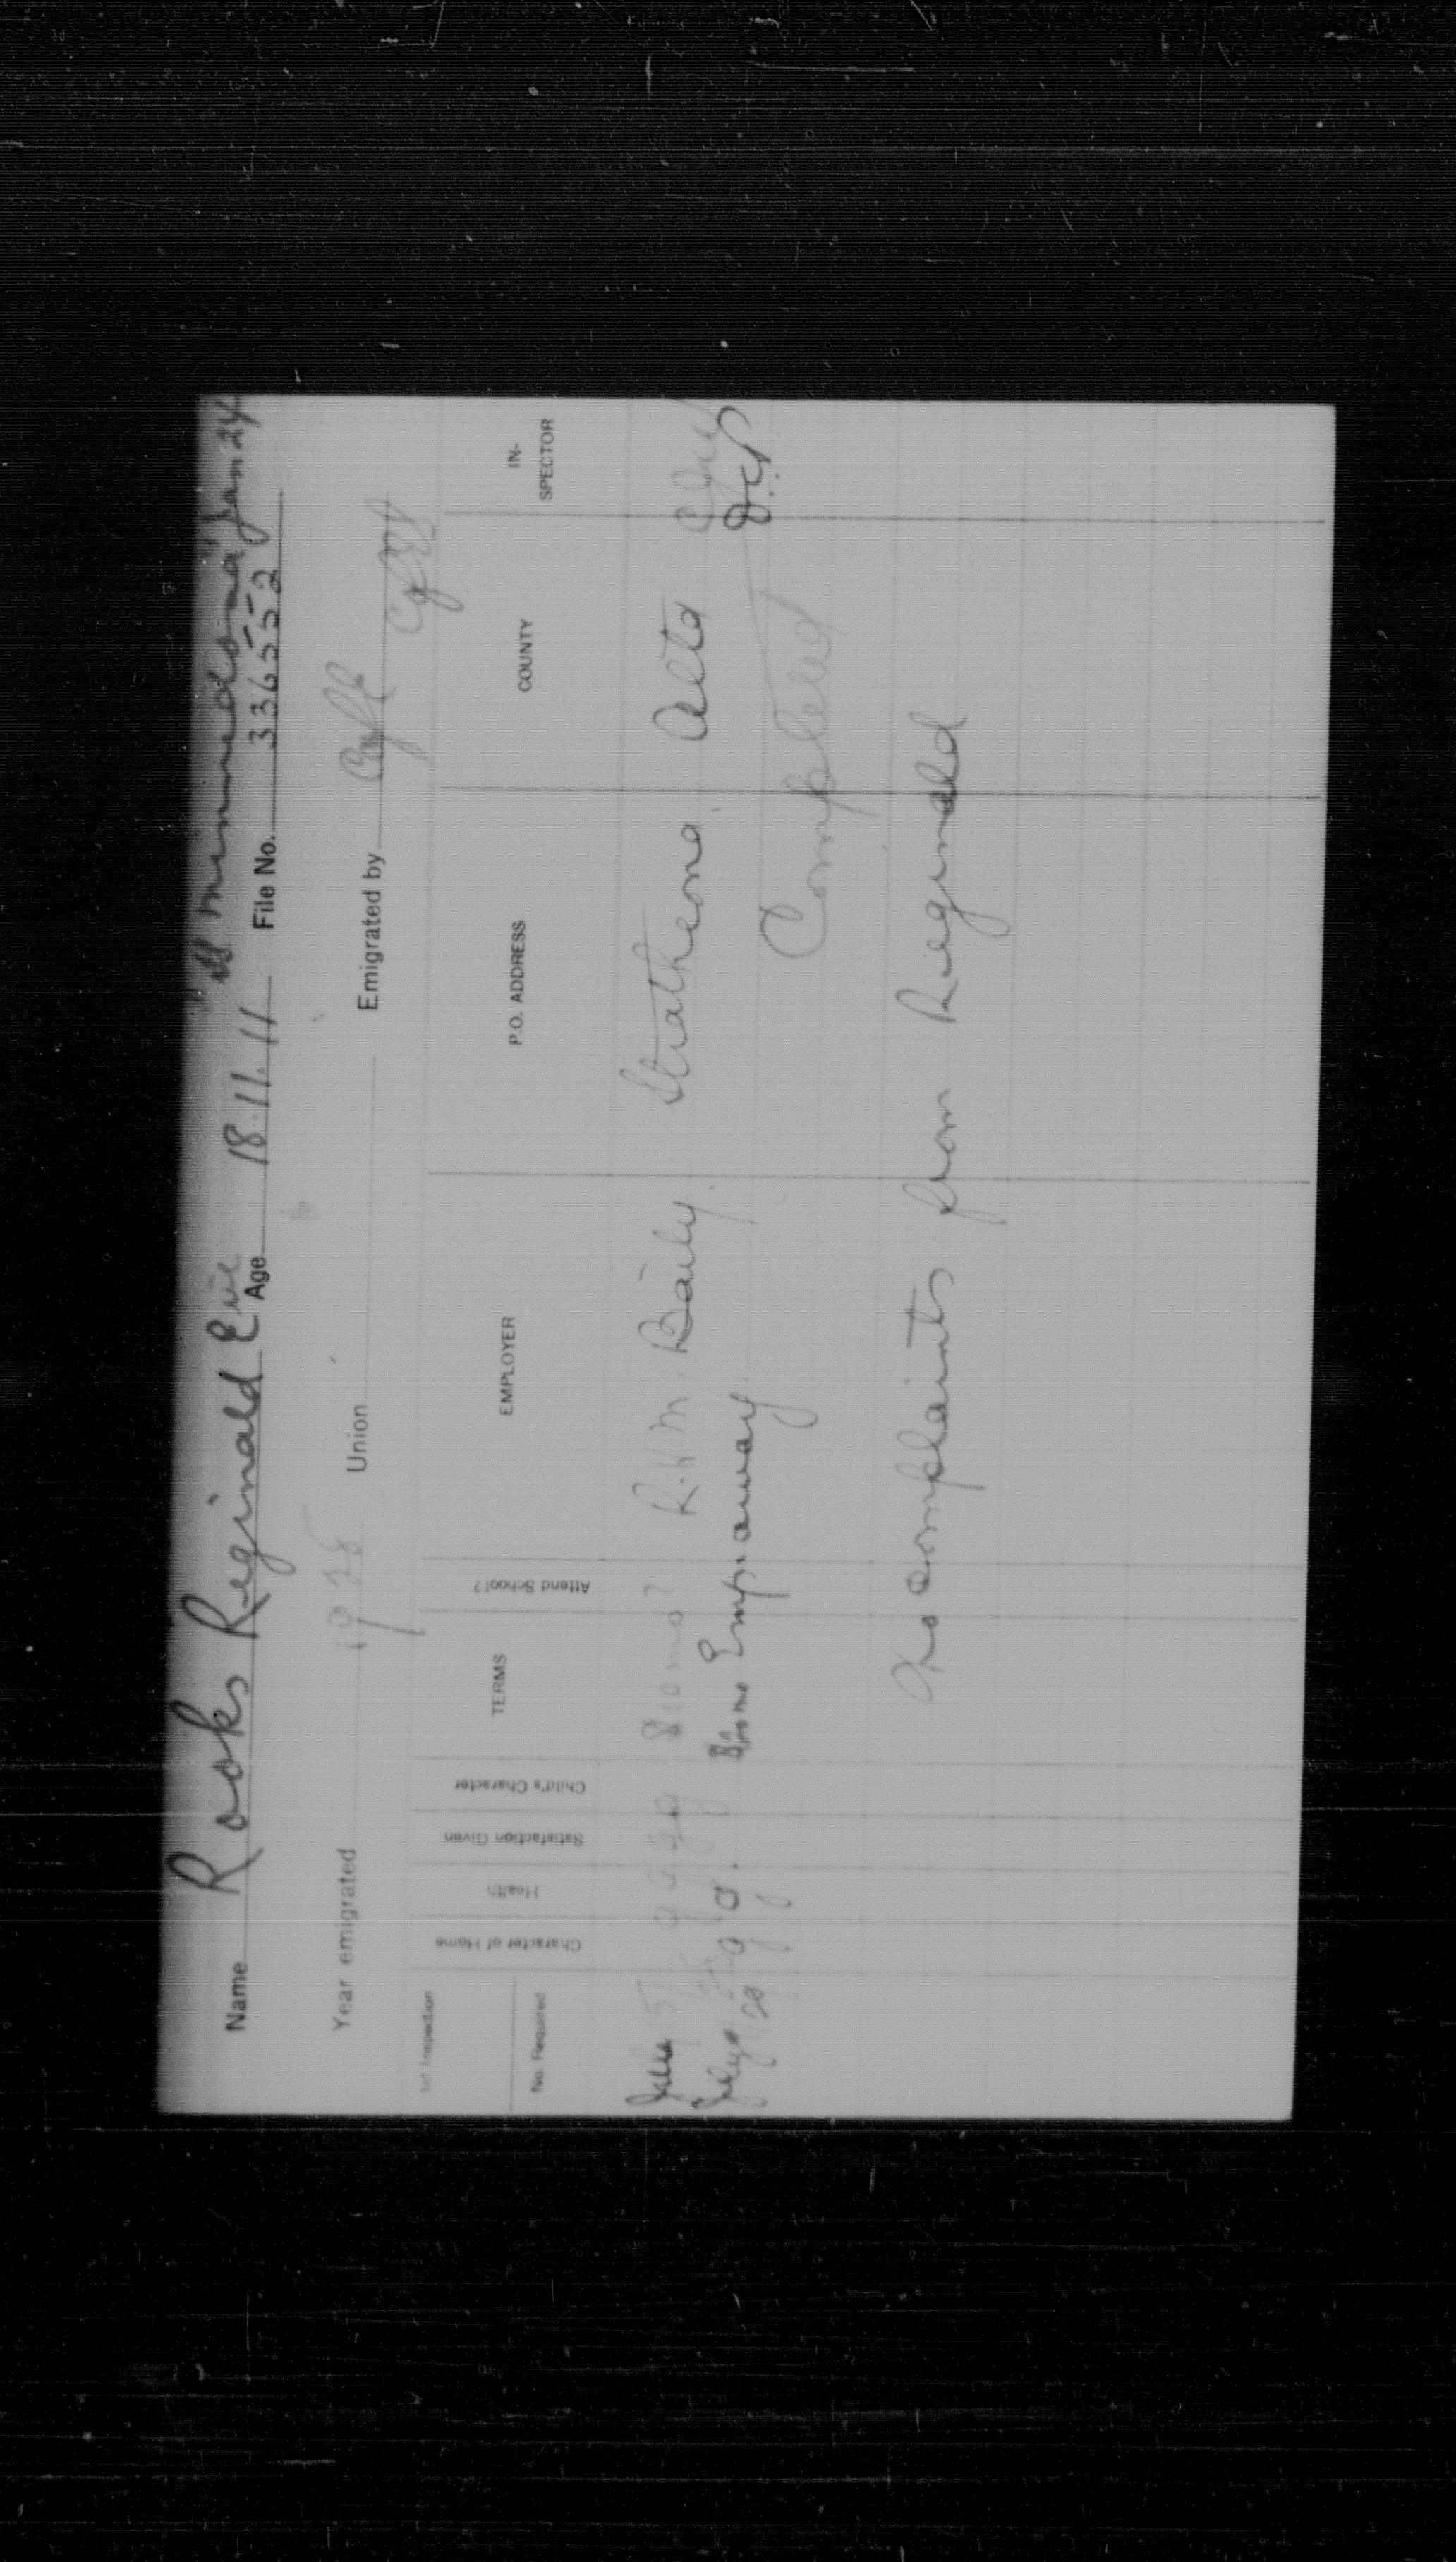 "SS Minnedosa" Jan 24
Name Rooks Reginald Eric Age 18.11.11 File No. 336552
Year emigrated 1928 Union Emigrated by
1st Inspection
No. Required
Character of Home Health Satisfaction Given Child's Character TERMS Attend School? EMPLOYER P.O. ADDRESS COUNTY IN-SPECTOR
July g g g g $10 mo? R. H. M. Baily. Strathcona. Alta
July 29 g g. Emp. away.
Completed
No complaints from Reginald